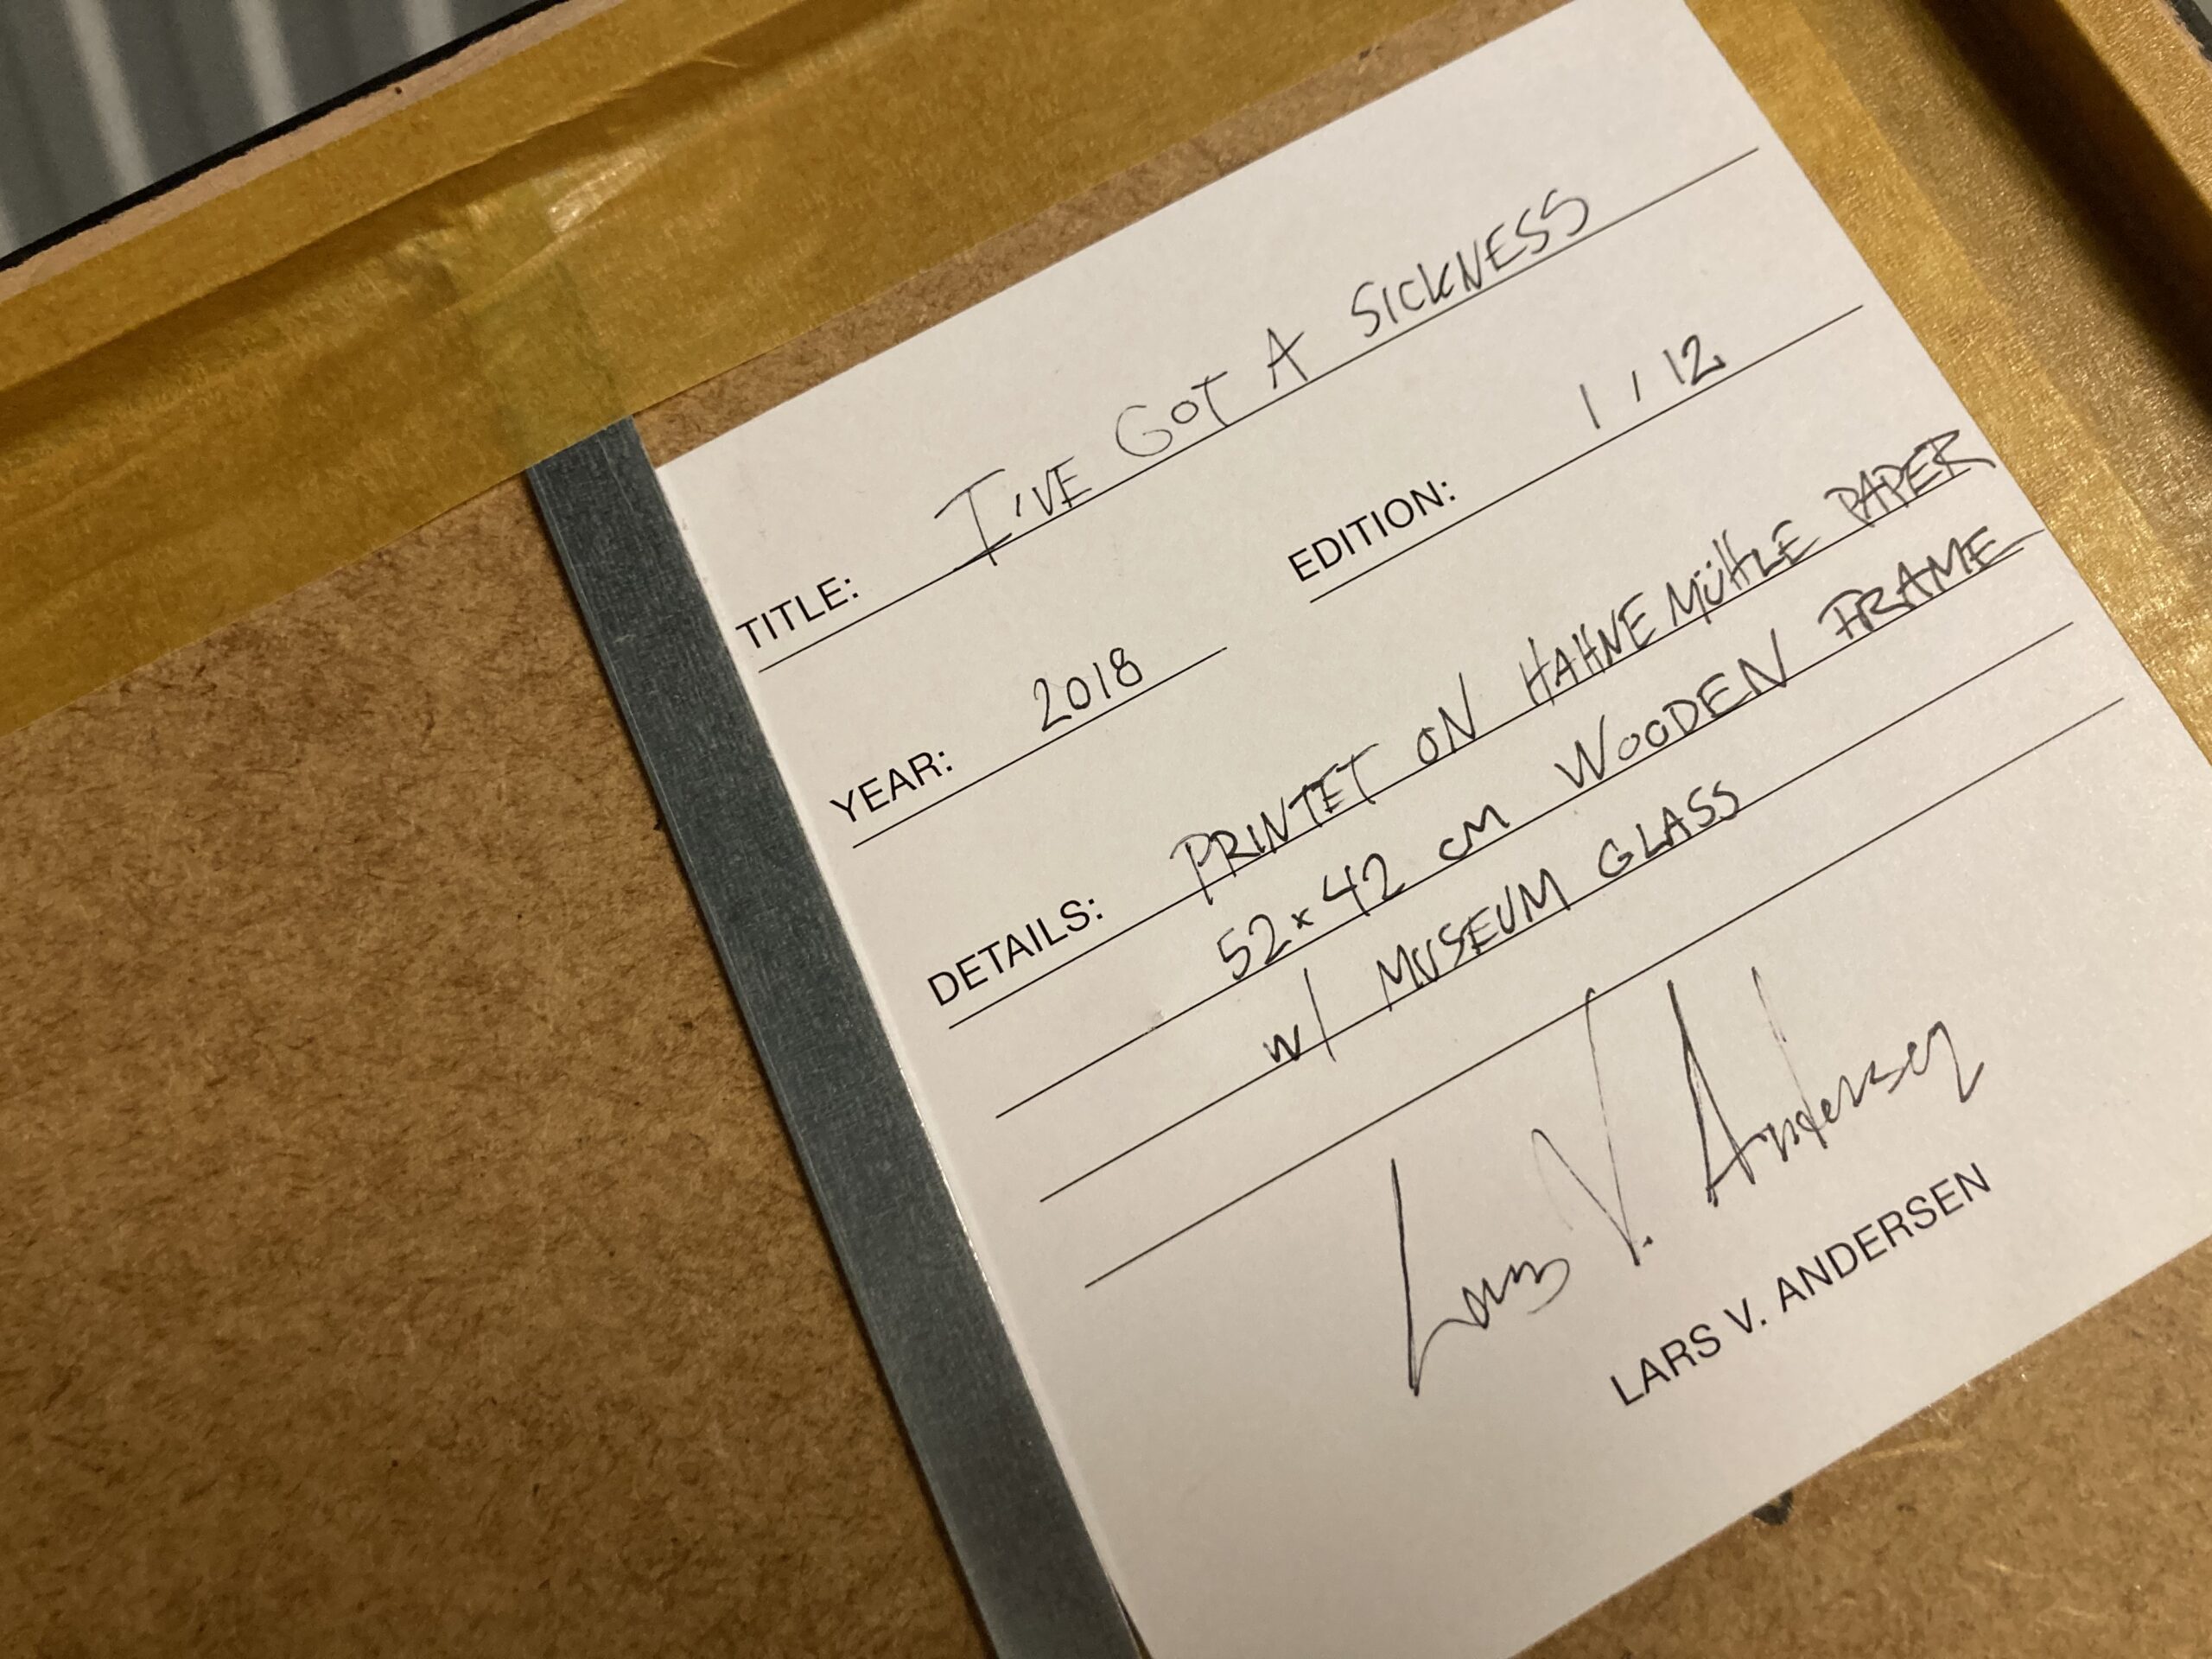 TITLE: I'VE GOT A SICKNESS
YEAR: 2018 EDITION: 1 / 12
DETAILS: PRINTET ON HAHNEMÜHLE PAPER
52x42 CM WOODEN FRAME
W/ MUSEUM GLASS
Lars V. Andersen
LARS V. ANDERSEN